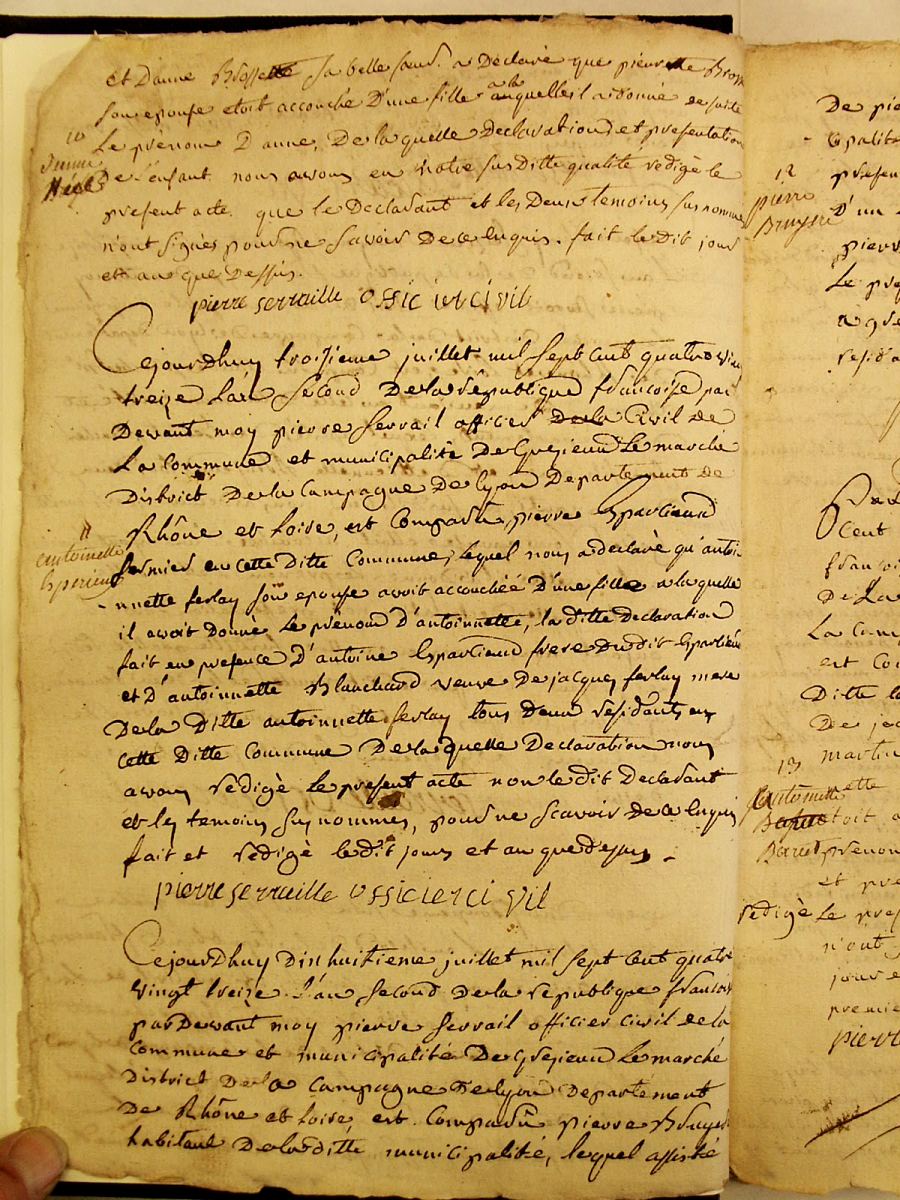 et Danne Brossette sa belle sœur. a Déclaré que pierrette Bross
son epouse etoit accouché D'une fille a la quelle il a donné de suite
Le prénom D'anne, De la quelle Declaration et presentation
De l'enfant nous avons en notre susditte qualité redigé le
present acte. que le Declarant et les Deux temoins susnommé
n'ont signés pour ne savoir De ce enquis. fait le dit jour
et an que Dessus.
pierre serraille officier civil
10
Cejourdhuy troisieme juillet mil sept cent quatre vin
treize L'an Second De la république françoise par
Devant moy pierre Serrail officier Civil de
La Commune et municipalité De Grezieux Le marché
District De la Campagne De lyon Departement de
Rhône et Loire, est Comparu pierre Esparcieux
fermier en cette Ditte Commune, lequel nous a declaré qu'antoi
nnette ferlay son epouse avoit accouchéé D'une fille a la quelle
il avoit Donné Le prénom D'antoinnette, la ditte Declaration
fait en presence D'antoine Esparcieux frere Du dit Esparcieux
et D'antoinnette Blanchard veuve De jacques ferlay mere
De la Ditte antoinnette ferlay tous Deux residants en
cette Ditte Commune De la quelle Declaration nous
avons redigé Le present acte non le dit Declarant
et les temoins susnommes, pour ne scavoir de ce enquis
fait et redigé le dit jour et an que dessus.
pierre serraille officier civil
11
antoinette
Cejourdhuy Dix huitieme juillet mil sept Cent quatre
vingt treize L'an Second de la république françois
par Devant moy pierre Serrail officier Civil de la
Commune et municipalité De Grezieux Le marché
District De la Campagne De lyon Departement
De Rhône et Loire, est Comparu pierre Bruyer
habitant De la ditte municipalité, lequel assisté
12
pierre
De pie
cipalité
presen
D'un
pierr
Le pre
a que
resida
Cent
françoi
De La
La Com
est Co
Ditte
De ja
martin
13
antoinette
prenom
et pre
redigé Le pres
n'ont
jour e
premie
pierr